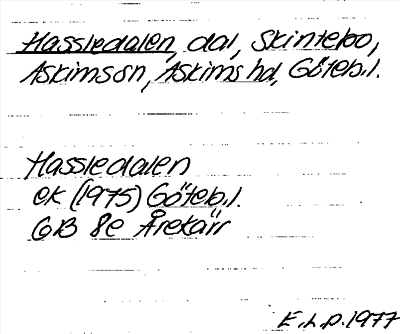 Hassledalen, dal, Skintebo,
Askimssn, Askims hd, Göteb.l.
Hassledalen
ek (1975) Göteb.l.
GB 8e Årekärr
E.L.P. 1977